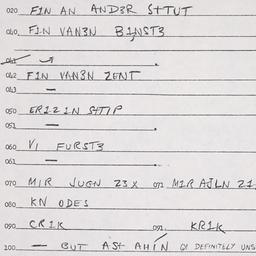 020 FIN AN AND3R STTUT
040 FIN VAN3N BINST3
041
042 FIN VAN3N ZENT
043 —
050 ERIZIN STTIP
051 —
060 VI FURST3
061 —
070 MIR JUGN 23X 071 MIR AJLN 21
080 KN ODES
090 CRIK 091 KRIK
100 — BUT AST AHIN GI DEFINITELY UNS